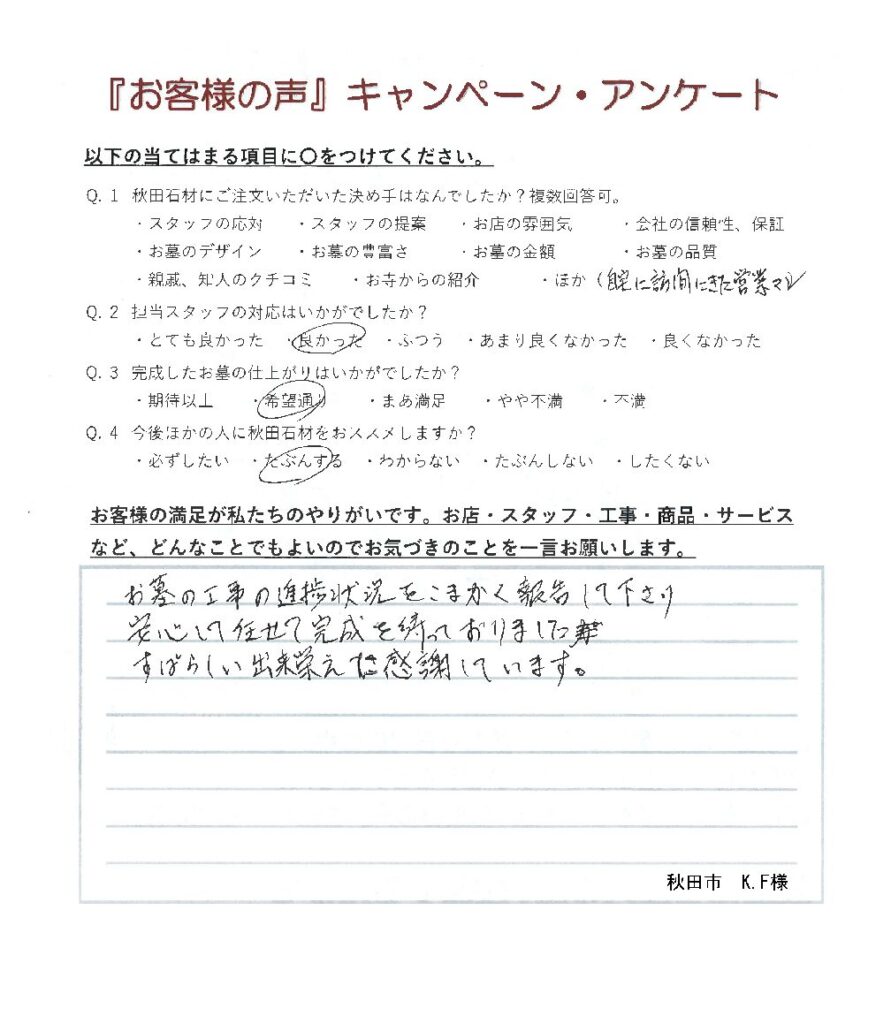 『お客様の声』キャンペーン・アンケート
以下の当てはまる項目に〇をつけてください。
Q. 1 秋田石材にご注文いただいた決め手はなんでしたか？複数回答可。
・スタッフの応対 ・スタッフの提案 ・お店の雰囲気 ・会社の信頼性、保証
・お墓のデザイン ・お墓の豊富さ ・お墓の金額 ・お墓の品質
・親戚、知人のクチコミ ・お寺からの紹介 ・ほか（自宅に訪問にきた営業マン
Q. 2 担当スタッフの対応はいかがでしたか？
・とても良かった ・良かった ・ふつう ・あまり良くなかった ・良くなかった
Q. 3 完成したお墓の仕上がりはいかがでしたか？
・期待以上 ・希望通り ・まあ満足 ・やや不満 ・不満
Q. 4 今後ほかの人に秋田石材をおススメしますか？
・必ずしたい ・たぶんする ・わからない ・たぶんしない ・したくない
お客様の満足が私たちのやりがいです。お店・スタッフ・工事・商品・サービス
など、どんなことでもよいのでお気づきのことを一言お願いします。
お墓の工事の進捗状況をこまかく報告して下さり
安心して任せて完成を待っておりました
すばらしい出来栄えに感謝しています。
秋田市 K.F様